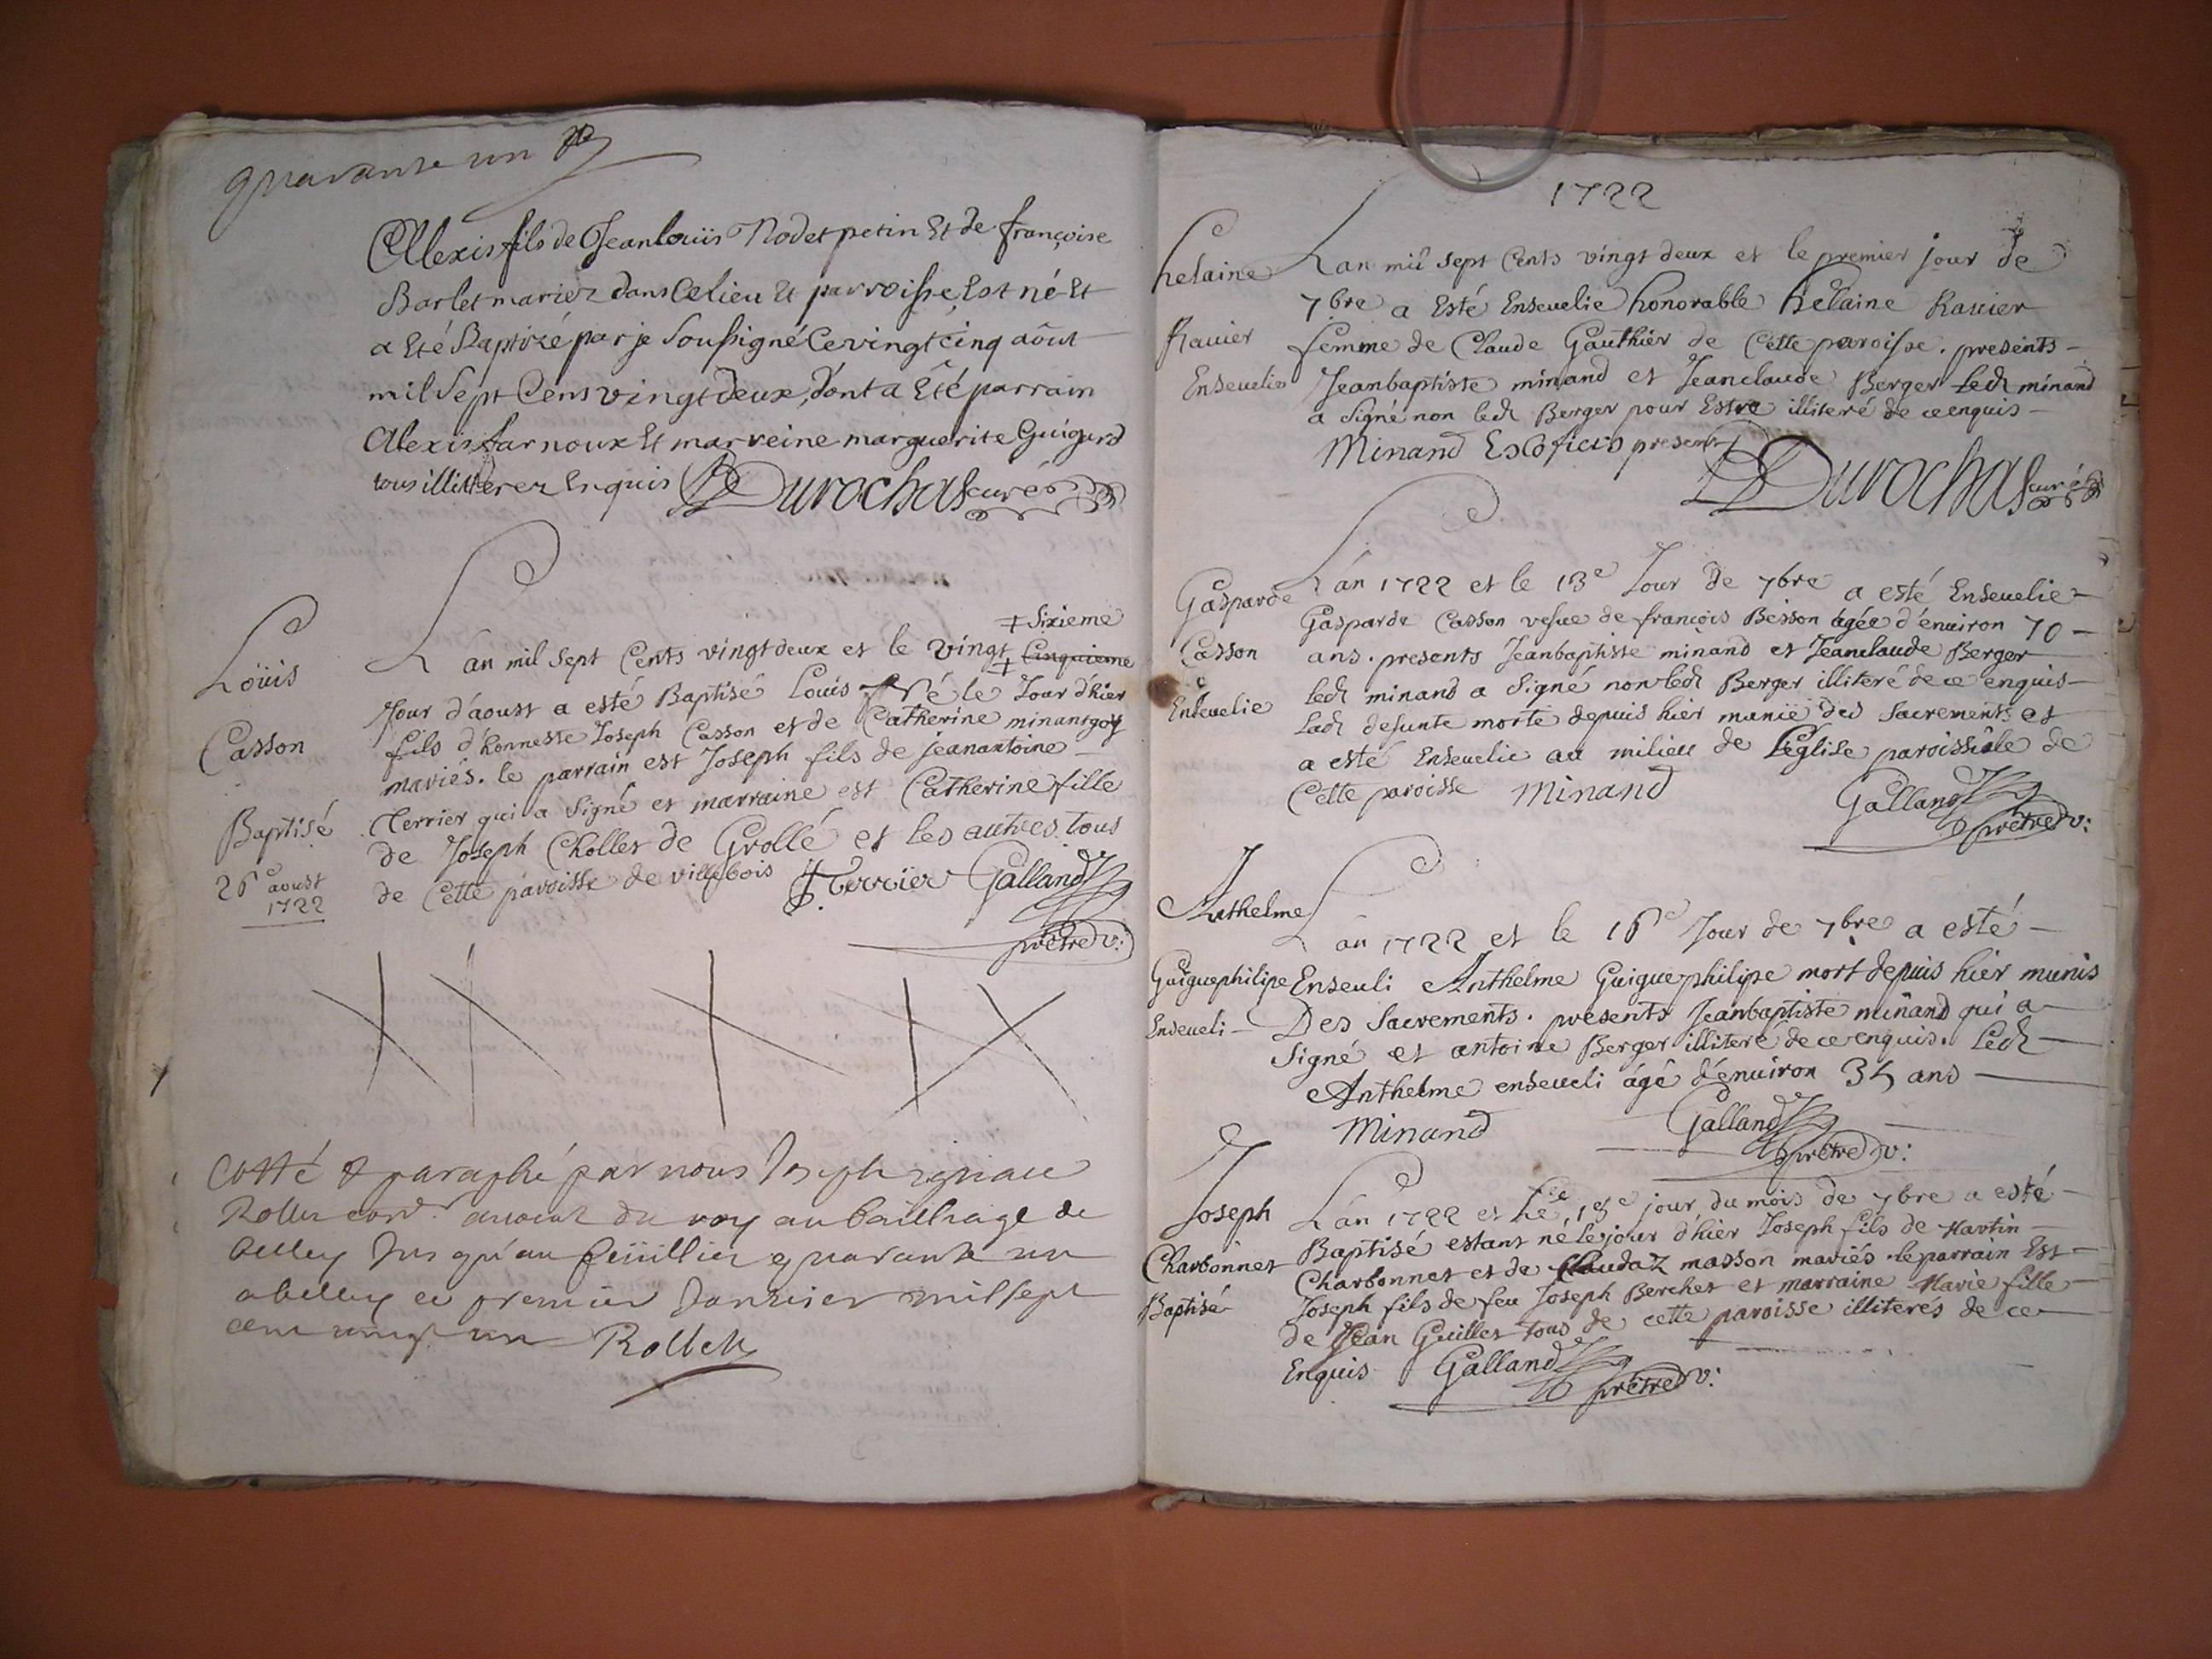 quarante un
Alexis fils de Jeanloüis Nodet petin Et de françoise
Barlet mariez dans Ce lieu Et parroisse, Est né Et
a Eté Baptizé par je Soussigné Ce vingt Cinq aôut
mil Sept Cens vingt deux, dont a Eté parrain
Alexis farnoux Et marreine marguerite Guigard
tous illitterez Enquis Durochas curé
Loüis
Casson
Baptisé
26e aoust
1722
‡ Sixieme
Lan mil sept Cents vingt deux et le vingt ‡ Cinquieme
Jour d'aoust a esté Baptisé Louis né le Jour d'hier
fils d'honneste Joseph Casson et de Catherine minangoy
mariés. le parrain est Joseph fils de jeanantoine
Terrier qui a Signé et marraine est Catherine fille
de Joseph Chollet de Grollé et les autres tous
de Cette paroisse de villebois J. Terrier Galland
prêtre v:
Cotté & paraphé par nous Joseph ignace
Rollet avocat du roy au bailliage de
belley Jusqu'au feüillier quarante un
a belley ce premier Janvier mil sept
cent vingt un Rollet
1722
helaine
Ravier
Enseuelie
Lan mil sept Cents vingt deux et le premier jour de
7bre a Esté Enseuelie honorable helaine Rauier
femme de Claude Gauthier de Cette paroisse. presents
Jeanbaptiste minand et Jeanclaude Berger Led minand
a Signé non led Berger pour Estre illiteré de ce enquis
Minand Escoficis present Durochas curé
Gasparde
Casson
Enseuelie
L'an 1722 et le 13e Jour de 7bre a esté Enseuelie
Gasparde Casson vefue de françois Besson âgée d'énuiron 70
ans. presents Jeanbaptiste minand et Jeanclaude Berger
led minand a Signé non led Berger illiteré de ce enquis
Lad defunte morte depuis hier munie des Sacrements et
a esté Enseuelie au milieu de L'eglise paroissiale de
Cette paroisse Minand Galland
prêtre v:
Anthelme
Guiguephilipe
Enseueli
L'an 1722 et le 16e Jour de 7bre a esté
Enseuli Anthelme Guiguephilipe mort depuis hier munis
Des Sacrements. presents Jeanbaptiste minand qui a
Signé et antoine Berger illiteré de ce enquis. Led
Anthelme enseueli âgé d'énuiron 35 ans
Minand Galland
prêtre v:
Joseph
Charbonnet
Baptisé
L'an 1722 et le 18e jour du mois de 7bre a esté
Baptisé estant né le jour d'hier Joseph fils de Martin
Charbonnet et de Claudaz masson mariés. le parrain Est
Joseph fils de feu Joseph Berchet et marraine Marie fille
de Jean Guillet tous de cette paroisse illiterés de ce
Enquis Galland prêtre v: